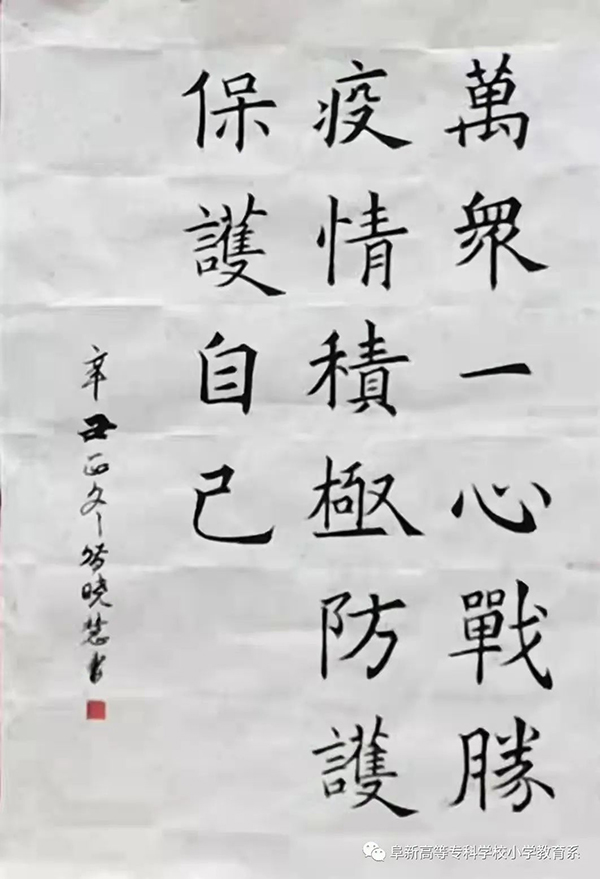 萬衆一心戰勝
疫情積極防護
保護自己
辛丑
晓慧书
阜新高等专科学校小学教育系